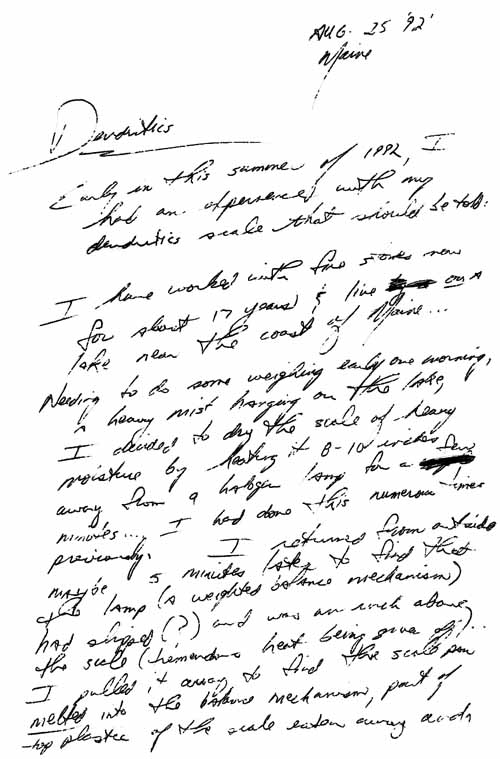 AUG. 25 '92'
Maine
Dendritics
Early in this summer of 1992, I
had an experience with my
dendritics scale that should be told:
I have worked with fine stones now
for about 17 years & live on a
lake near the coast of Maine...
Needing to do some weighing early one morning,
a heavy mist hanging on the lake,
I decided to dry the scale of heavy
moisture by heating it 8-10 inches
away from a halogen lamp for a few
minutes... I had done this numerous times
previously. I returned from outside
maybe 5 minutes later to find that
lamp (a weighted balance mechanism)
had slipped (?) and was an inch above
the scale (tremendous heat being given off)...
I pulled it away to find the scale pan
melted into the balance mechanism, part of
top plastic of the scale eaten away and